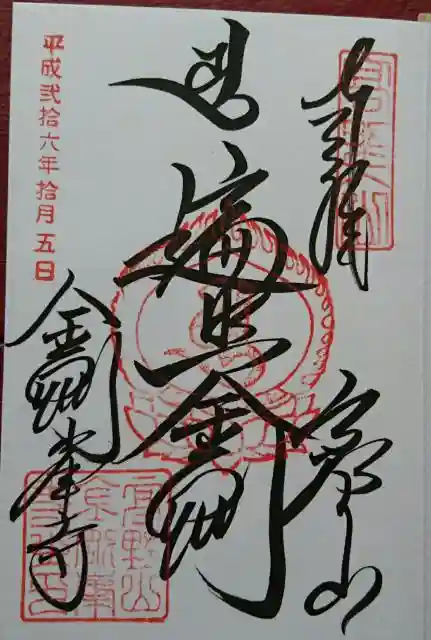 奉拝
高野山
遍照金剛
金剛峯寺
平成弐拾六年拾月五日